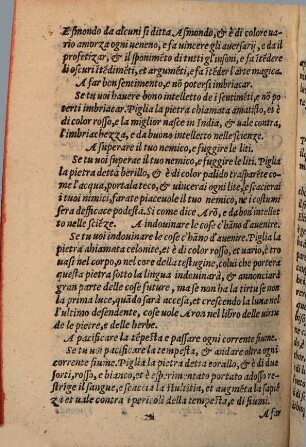 Esmondo da alcuni si ditta Asmondo, & è di colore ua-
rio amorza ogni ueneno, e fa uincere gli auersarij, e da il
profetizar, & il sponimẽto di tutti gl'insoni, e fa itẽdere
di oscuri itẽdimẽti, et argumẽti, e fa itẽder l'arte magica.
A far ben sentimento, e nõ poterti imbriacar.
Se tu uoi hauere bono intelletto de i sentimẽti, e nõ po
terti imbriacar. Piglia la pietra chiamata amatisto, et è
di color rosso, e la miglior nasce in India, & uale contra
l'imbriachezza, e da buono intelletto nelle sciẽze.
A superare il tuo nemico, e fuggire le liti.
Se tu uoi superae il tuo nemico, e fuggire le liti. Piglia
la pietra detta berillo, & è di color palido trasparẽte co-
me l'acqua, porta la teco, & uincerai ogni lite, e scacierai
i tuoi nimici, farate piaceuole il tuo nemico, ne i costumi
sera defficace podestà. Si come dice Arõ, e da boã intellet
to nelle sciẽze. A indouinare le cose c'hãno d'auenire.
Se tu uoi indouinare le cose c'hãno d'auenire. Piglia la
pietra chiamata celonite, et è di color rosso, et uario, è tro
uasi nel corpo, o nel core della testugine, colui che portera
questa pietra sotto la lingua indouinarà, & annonciarà
gran parte delle cose future, ma se non ha la uirtù se non
la prima luce, quãdo sarà accesa, et crescendo la luna nel
l'ultimo desendente, cose uole Aron nel libro delle uirtu
de le pietre, e delle herbe.
A pacificare la tẽpesta e passare ogni corrente fiume.
Se tu uoi pacificare la tempesta, & andare oltra ogni
corrente fiume. Piglia la pietra detta corallo, & è di due
sorti, rosso, e bianco, et è esperimentato portato adosso re-
strige il sangue, e scaccia la stultitia, et augmẽta la sapiẽ
za et uale contra i pericoli della tempesta, e di fiumi.
A far